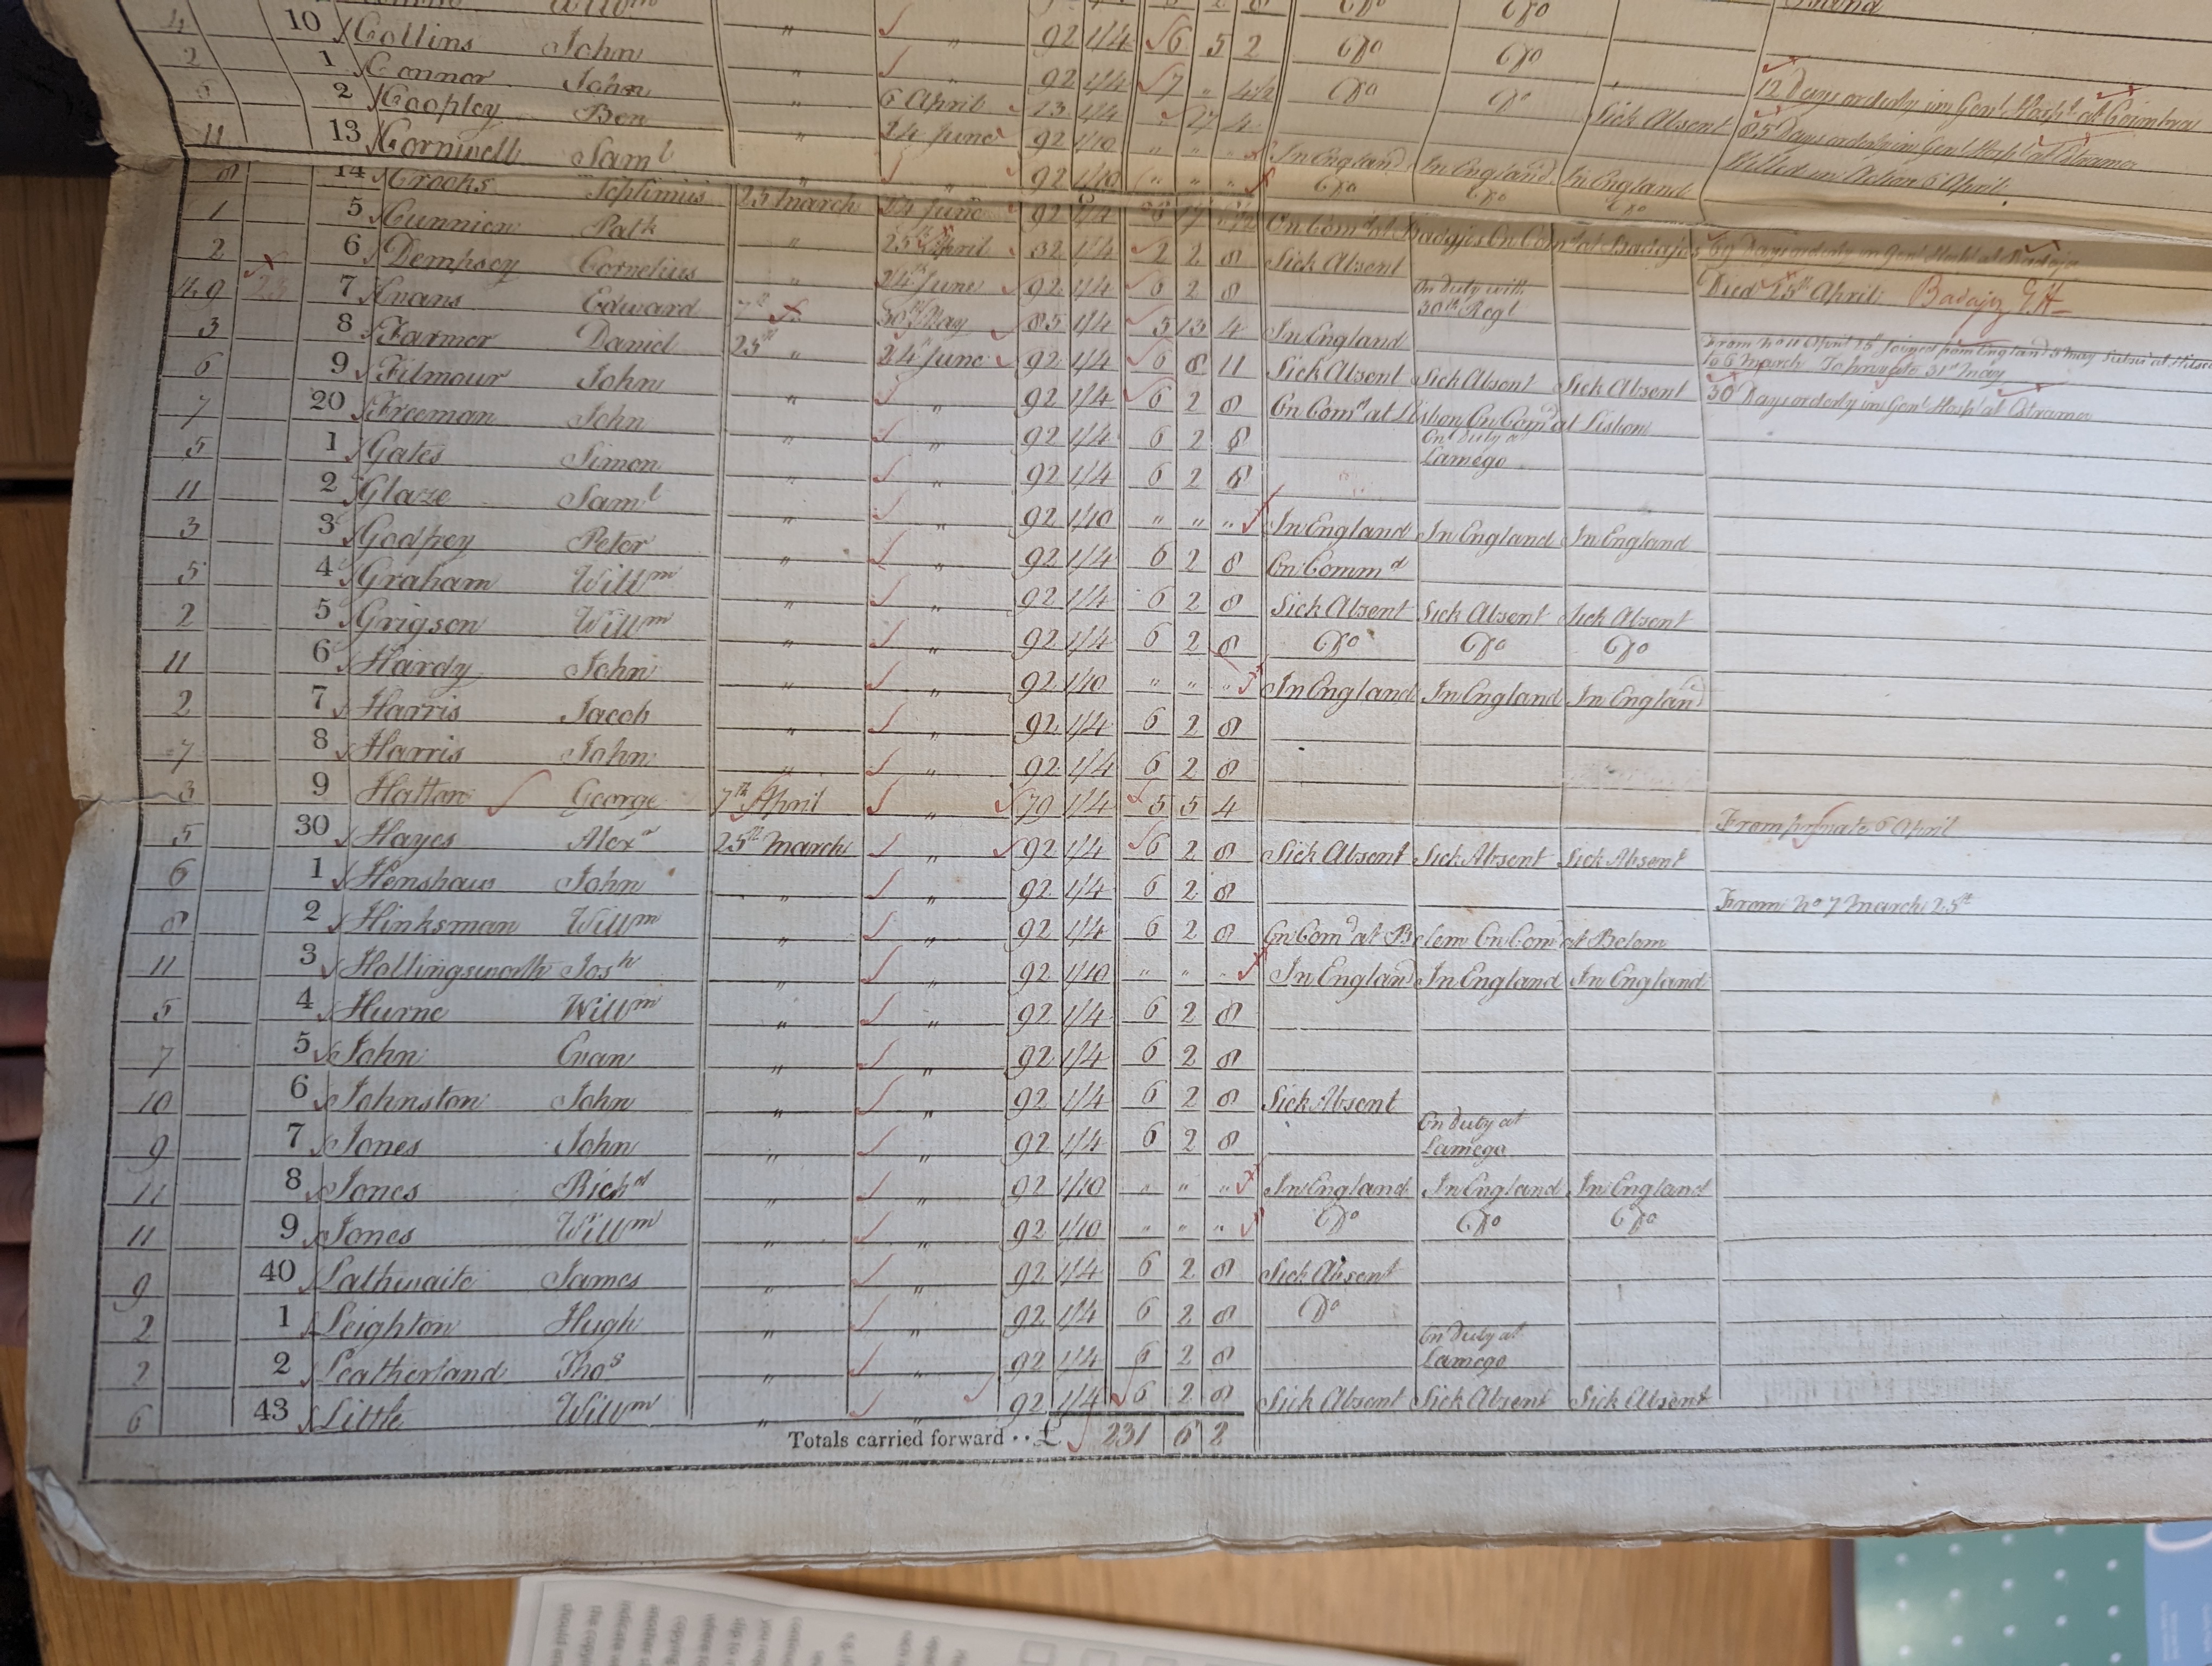 Willm Do Do
4 10 Collins John " " 92 1/4 6 5 2 Do Do
2 1 Connor John " " 92 1/4 7 " 4½ Do Do 12 Days orderly in Genl Hospl at Coimbra
5 2 Coopley Ben " 6 April 13 1/4 " 17 4 Sick Absent 85 Days orderly in Genl Hospl at Estramos
11 13 Cornwell Saml " 24 June 92 1/10 " " " In England In England In England Killed in Action 6 April
8 14 Crooks Septimus 25 March 24 June 92 1/10 " " " Do Do Do
1 5 Cunnien Patk " 92 1/4 6 17 On Comd at Badajos On Comd at Badajos 69 Days orderly in Genl Hospl at Badajos
2 6 Dempsey Cornelius " 25 April 32 1/4 2 2 8 Sick Absent Died 25th April Badajoz
4.9 7 Evans Edward 24th June 92 1/4 6 2 8 On duty with 30th Regt
3 8 Farmer Daniel 25th " 24th June 85 1/4 5 13 4 In England
6 9 Filmour John " " 92 1/4 6 8 11 Sick Absent Sick Absent Sick Absent 30 Days orderly in Genl Hospl at Estramos
7 20 Freeman John " " 92 1/4 6 2 8 On Comd at Lisbon On Comd at Lisbon
5 1 Gates Simon " " 92 1/4 6 2 8 On duty at Lamego
11 2 Glaze Saml " " 92 1/4 6 2 8
3 3 Godfrey Peter " " 92 1/10 " " " In England In England In England
5 4 Graham Willm " " 92 1/4 6 2 8 On Commd
2 5 Grigson Willm " " 92 1/4 6 2 8 Sick Absent Sick Absent Sick Absent
11 6 Hardy John " " 92 1/4 6 2 8 Do Do Do
2 7 Harris Jacob " " 92 1/10 " " " In England In England In England
7 8 Harris John " " 92 1/4 6 2 8
3 9 Hatton George 7th April " 79 1/4 5 5 4 From private 6 April
5 30 Hayes Alexr 25th March " 92 1/4 6 2 8 Sick Absent Sick Absent Sick Absent
6 1 Henshaw John " " 92 1/4 6 2 8 From No 7 March 25th
8 2 Hinksman Willm " " 92 1/4 6 2 8 On Comd at Belem On Comd at Belem
11 3 Hollingsworth Josh " " 92 1/10 " " " In England In England In England
5 4 Hurne Willm " " 92 1/4 6 2 8
7 5 John Evan " " 92 1/4 6 2 8
10 6 Johnston John " " 92 1/4 6 2 8 Sick Absent
9 7 Jones John " " 92 1/4 6 2 8 On duty at Lamego
11 8 Jones Richd " " 92 1/10 " " " In England In England In England
11 9 Jones Willm " " 92 1/10 " " " Do Do Do
9 40 Lathwaite James " " 92 1/4 6 2 8 Sick Absent
2 1 Leighton Hugh " " 92 1/4 6 2 8 Do
2 2 Leatherland Thos " " 92 1/4 6 2 8 On duty at Lamego
6 43 Little Willm " " 92 1/4 6 2 8 Sick Absent Sick Absent Sick Absent
Totals carried forward .. £ 231 6 2